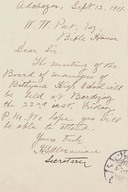 Sept. 12, 1911.
W. W. Peet, Esq.,
Bible House
Dear Sir:
The meeting of the
Board of managers of
Bithynia High School will
be held at Bardizag
the 22nd inst., Friday,
P.M. We hope you will
be able to attend.
Yours truly,
Secretary